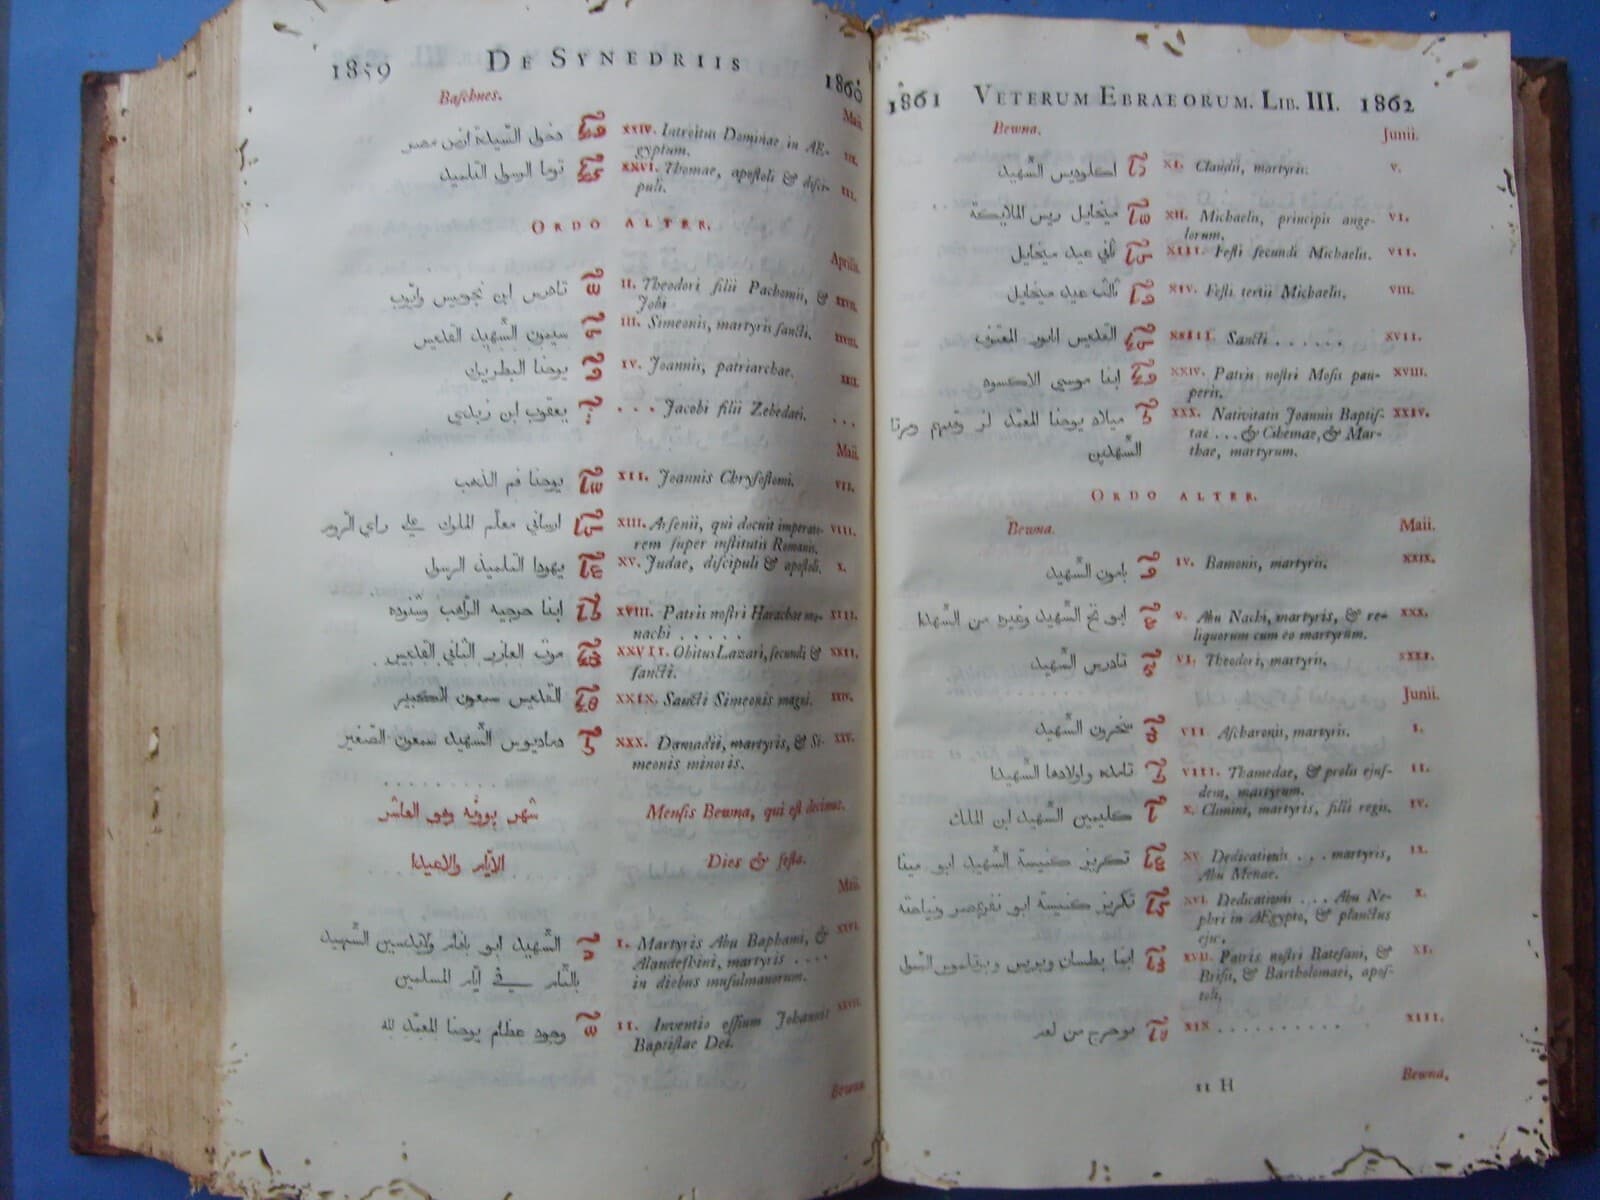 1859 DE SYNEDRIIS 1860
Baſchnes. Maii
دخول السّيدة ارض مصر XXIV. Introitus Dominae in AE- XIX.
gyptum.
توما الرسول التلميذ XXVI. Thomae, apoſtoli & diſci-
puli.
ORDO ALTER.
Aprilis
تادرس ابن وايوب II. Theodori filii Pachomii, & XXVII.
Jobi
سيمون الشهيد القديس III. Simeonis, martyris ſancti. XXVIII.
يوحنا البطريك IV. Joannis, patriarchae. XXIX.
يعقوب ابن زبدي . . . Jacobi filii Zebedaei. . . .
Maii.
يوحنا فم الذهب XII. Joannis Chryſoſtomi. VII.
ارساني معلّم الملوك علي راي الروم XIII. Arſenii, qui docuit imperato- VIII.
rem ſuper inſtitutis Romanis.
يهودا التلميذ الرسول XV. Judae, diſcipuli & apoſtoli. X.
ابنا الرّاهب وشنوده XVIII. Patris noſtri Harachae mo- XIII.
nachi . . . . .
موت العازر الثاني القديس XXVII. Obitus Lazari, ſecundi & XXII.
ſancti.
القديس سمعون الكبير XXIX. Sancti Simeonis magni. XXIV.
دماديوس الشّهيد سمعون الصّغير XXX. Damadii, martyris, & Si- XXV.
meonis minoris.
. . . . . . . . .
شهر بوونه وهو العاشر Menſis Bewna, qui eſt decimus.
الايّام والاعياد Dies & feſta.
Maii
الشّهيد ابو الشّهيد I. Martyris Abu Baphami, & XXVI.
Alandeſhini, martyris . . . .
بالشّام في ايّام المسلمين in diebus muſulmanorum.
وجود عظام يوحنا المعمّد لله II. Inventio oſſium Johannis XXVII.
Baptiſtae Dei.
Bewna
1861 VETERUM EBRAEORUM. LIB. III. 1862
Bewna. Junii.
اكلوديس الشّهيد XI. Claudii, martyris. V.
ميخايل ريس الملايكة XII. Michaelis, principis ange- VI.
lorum.
ثاني عيد ميخايل XIII. Feſti ſecundi Michaelis. VII.
ثالث عيد ميخايل XIV. Feſti tertii Michaelis. VIII.
القديس XXIII. Sancti . . . . . . XVII.
ابنا موسي XXIV. Patris noſtri Moſis pau- XVIII.
peris.
ميلاد يوحنا المعمّد ومرتا XXX. Nativitatis Joannis Baptiſ- XXIV.
tae . . . & Cihemae, & Mar-
الشّهدين thae, martyrum.
ORDO ALTER.
Bewna. Maii.
بامون الشّهيد IV. Bamonis, martyris. XXIX.
ابو نخ الشّهيد وغيره من الشّهدا V. Abu Nachi, martyris, & re- XXX.
liquorum cum eo martyrum.
تادرس الشّهيد VI. Theodori, martyris. XXXI.
Junii.
الشّهيد VII. Aſcharonis, martyris. I.
تامده واولادها الشّهيدا VIII. Thamedae, & prolis ejuſ- II.
dem, martyrum.
كليمين الشّهيد ابن الملك X. Climini, martyris, filii regis. IV.
تكريز كنيسة الشّهيد ابو مينا XV. Dedicationis . . . martyris, IX.
Abu Menae.
تكريز كنيسة ابو نفر بمصر ونياحته XVI. Dedicationis . . . Abu Ne- X.
phri in AEgypto, & planctus
ejus.
ابنا بطسان XVII. Patris noſtri Bateſani, & XI.
Briſii, & Bartholomaei, apoſ-
toli.
XIX . . . . . . . . . . XIII.
11 H Bewna.